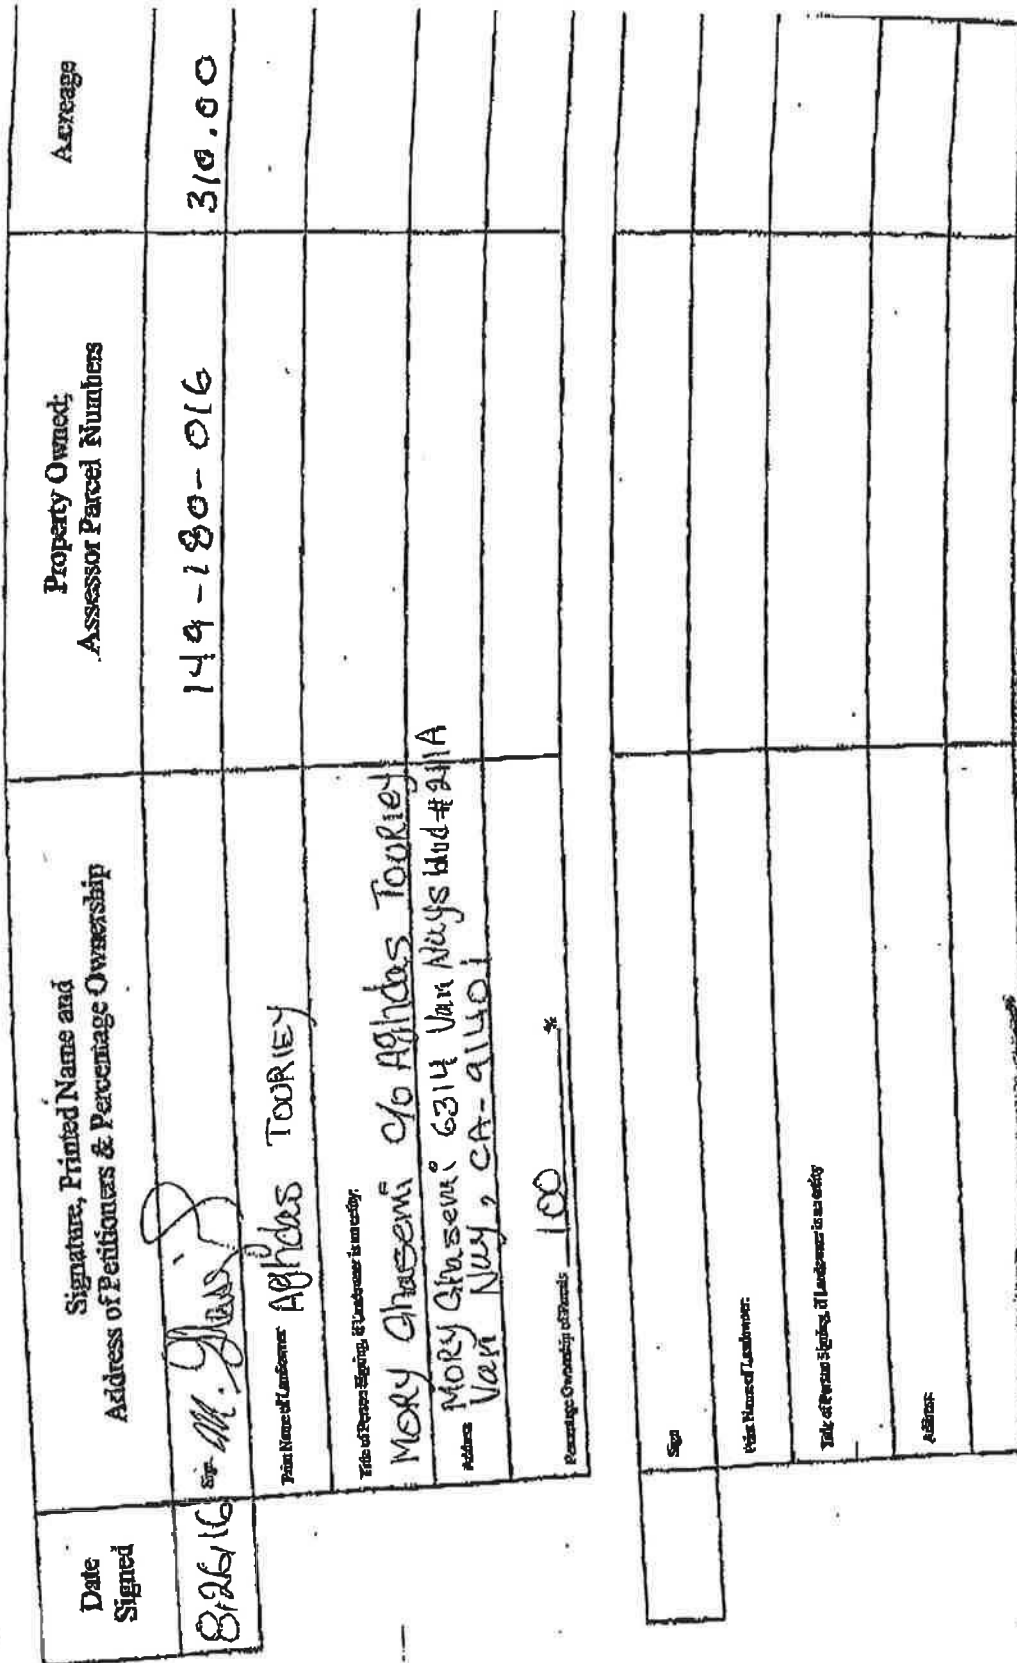 Date
Signed
Signature, Printed Name and
Address of Petitioners & Percentage Ownership
Property Owned;
Assessor Parcel Numbers
Acreage
8/26/16
Sign
149-180-016
310.00
Print Name of Landowner Aghdas TOORIEY
Title of Person Signing, if Landowner is an entity:
MORY Ghasemi c/o Aghdas TOORIEY
Address MORY Ghasemi 6314 Van Nuys blvd # 211A
Van Nuy, CA-91401
Percentage Ownership of Parcels 100 %
Sign
Print Name of Landowner:
Title of Person Signing, if Landowner is an entity
Address: